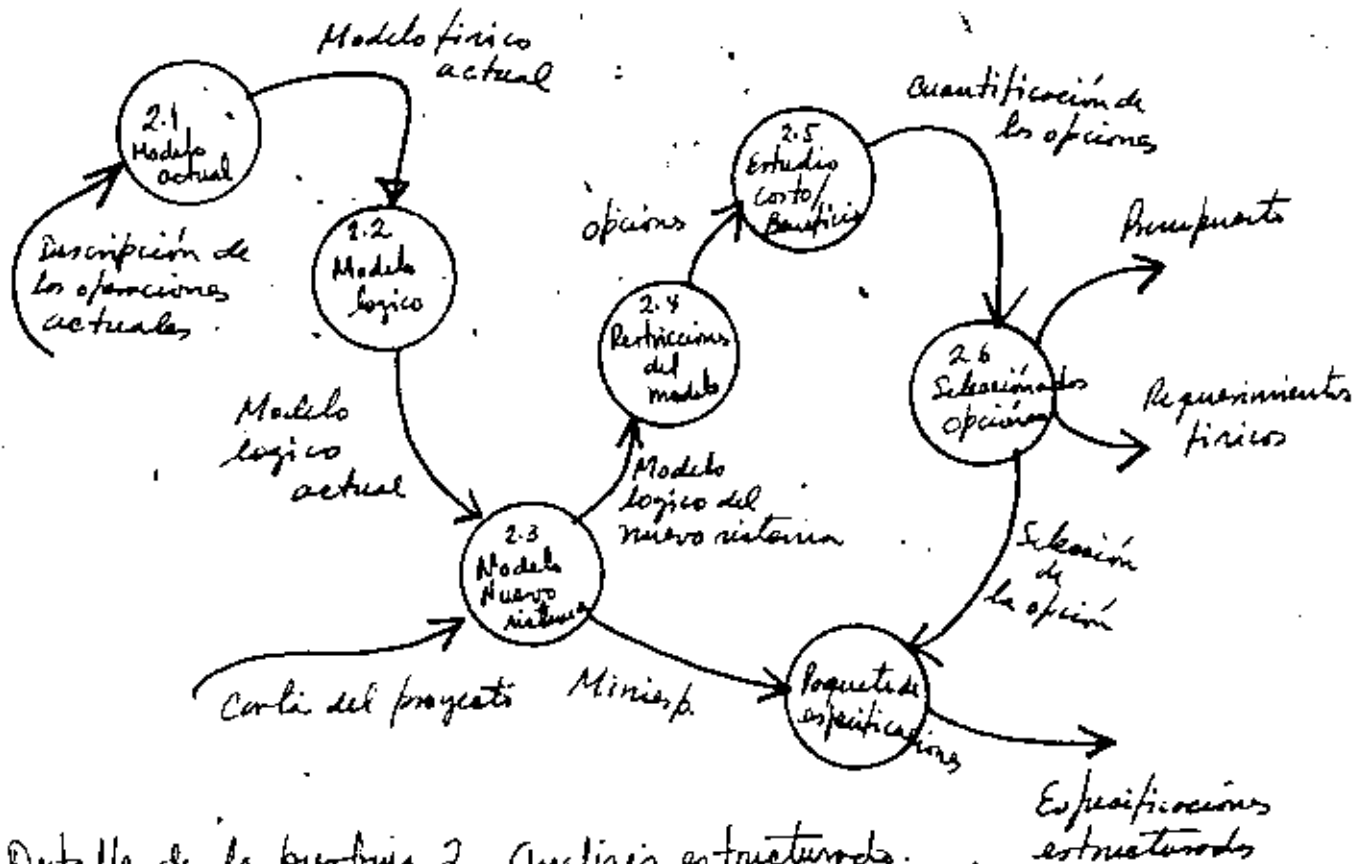 Modelo físico
actual
2.1
Modelo
actual
Descripción de
las operaciones
actuales.
2.2
Modelo
logico
Modelo
logico
actual
2.3
Modelo
Nuevo
sistema
Carta del proyecto
Modelo
logico del
nuevo sistema
2.4
Restricciones
del
modelo
opciones
2.5
Estudio
costo/
Beneficio
Cuantificación de
las opciones
2.6
opciones
Presupuesto
Requerimientos
físicos
Selección
de
la opción
Miniesp.
Paquete de
especificaciones
Especificaciones
estructuradas
Detalle de la burbuja 2. Analisis estructurado.